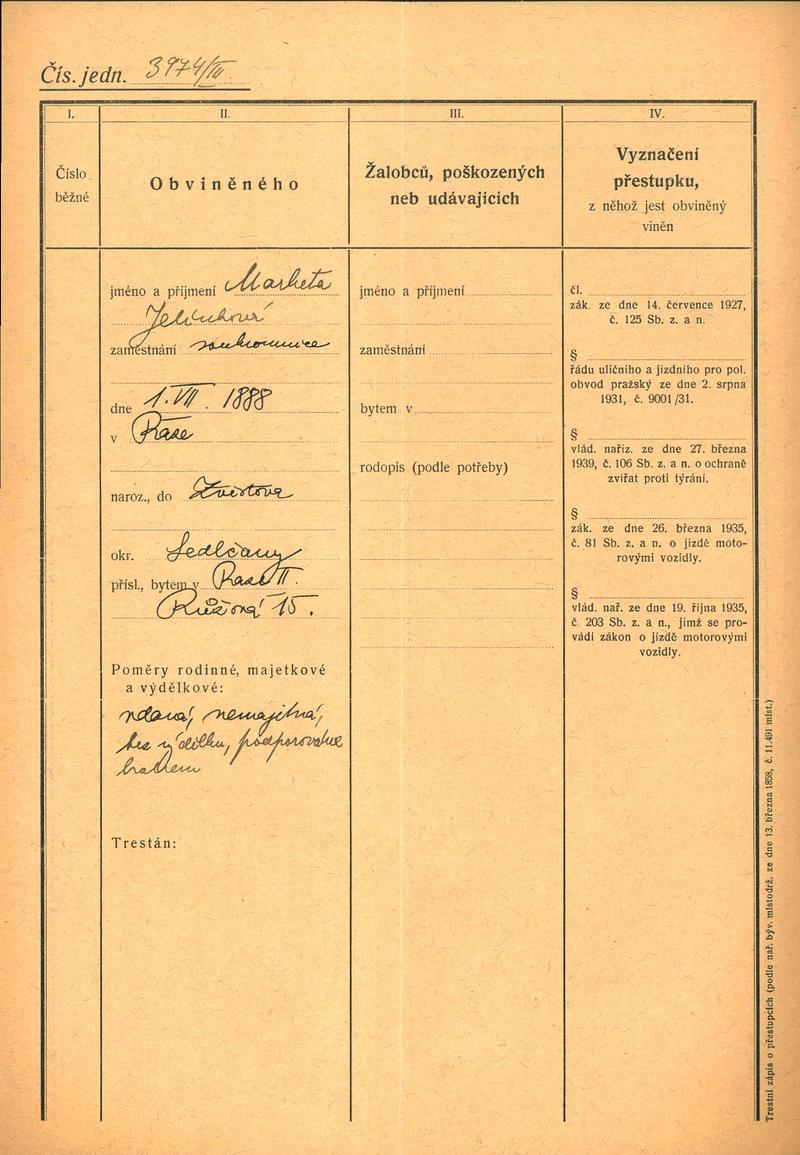 Čís. jedn. 3974/IV
I.
Číslo
běžné
II.
Obviněného
III.
Žalobců, poškozených
neb udávajících
IV.
Vyznačení
přestupku,
z něhož jest obviněný
viněn
jméno a příjmení Marketa
Jelínková
zaměstnání soukromnice
dne 1. VII. 1888
v Praze
naroz., do
okr. Sedlčany
přísl., bytem v Praze II.
Růžová 15.
Poměry rodinné, majetkové
a výdělkové:
vdaná, nemajetná,
bez výdělku, podporovaná
bratrem
Trestán:
jméno a příjmení
zaměstnání
bytem v
rodopis (podle potřeby)
čl.
zák. ze dne 14. července 1927,
č. 125 Sb. z. a n.
§
řádu uličního a jízdního pro pol.
obvod pražský ze dne 2. srpna
1931, č. 9001/31.
§
vlád. naříz. ze dne 27. března
1939, č. 106 Sb. z. a n. o ochraně
zvířat proti týrání.
§
zák. ze dne 26. března 1935,
č. 81 Sb. z. a n. o jízdě moto-
rovými vozidly.
§
vlád. nař. ze dne 19. října 1935,
č. 203 Sb. z. a n., jímž se pro-
vádí zákon o jízdě motorovými
vozidly.
Trestní zápis o přestupcích (podle nař. býv. místodrž. ze dne 13. března 1858, č. 11.491 míst.)